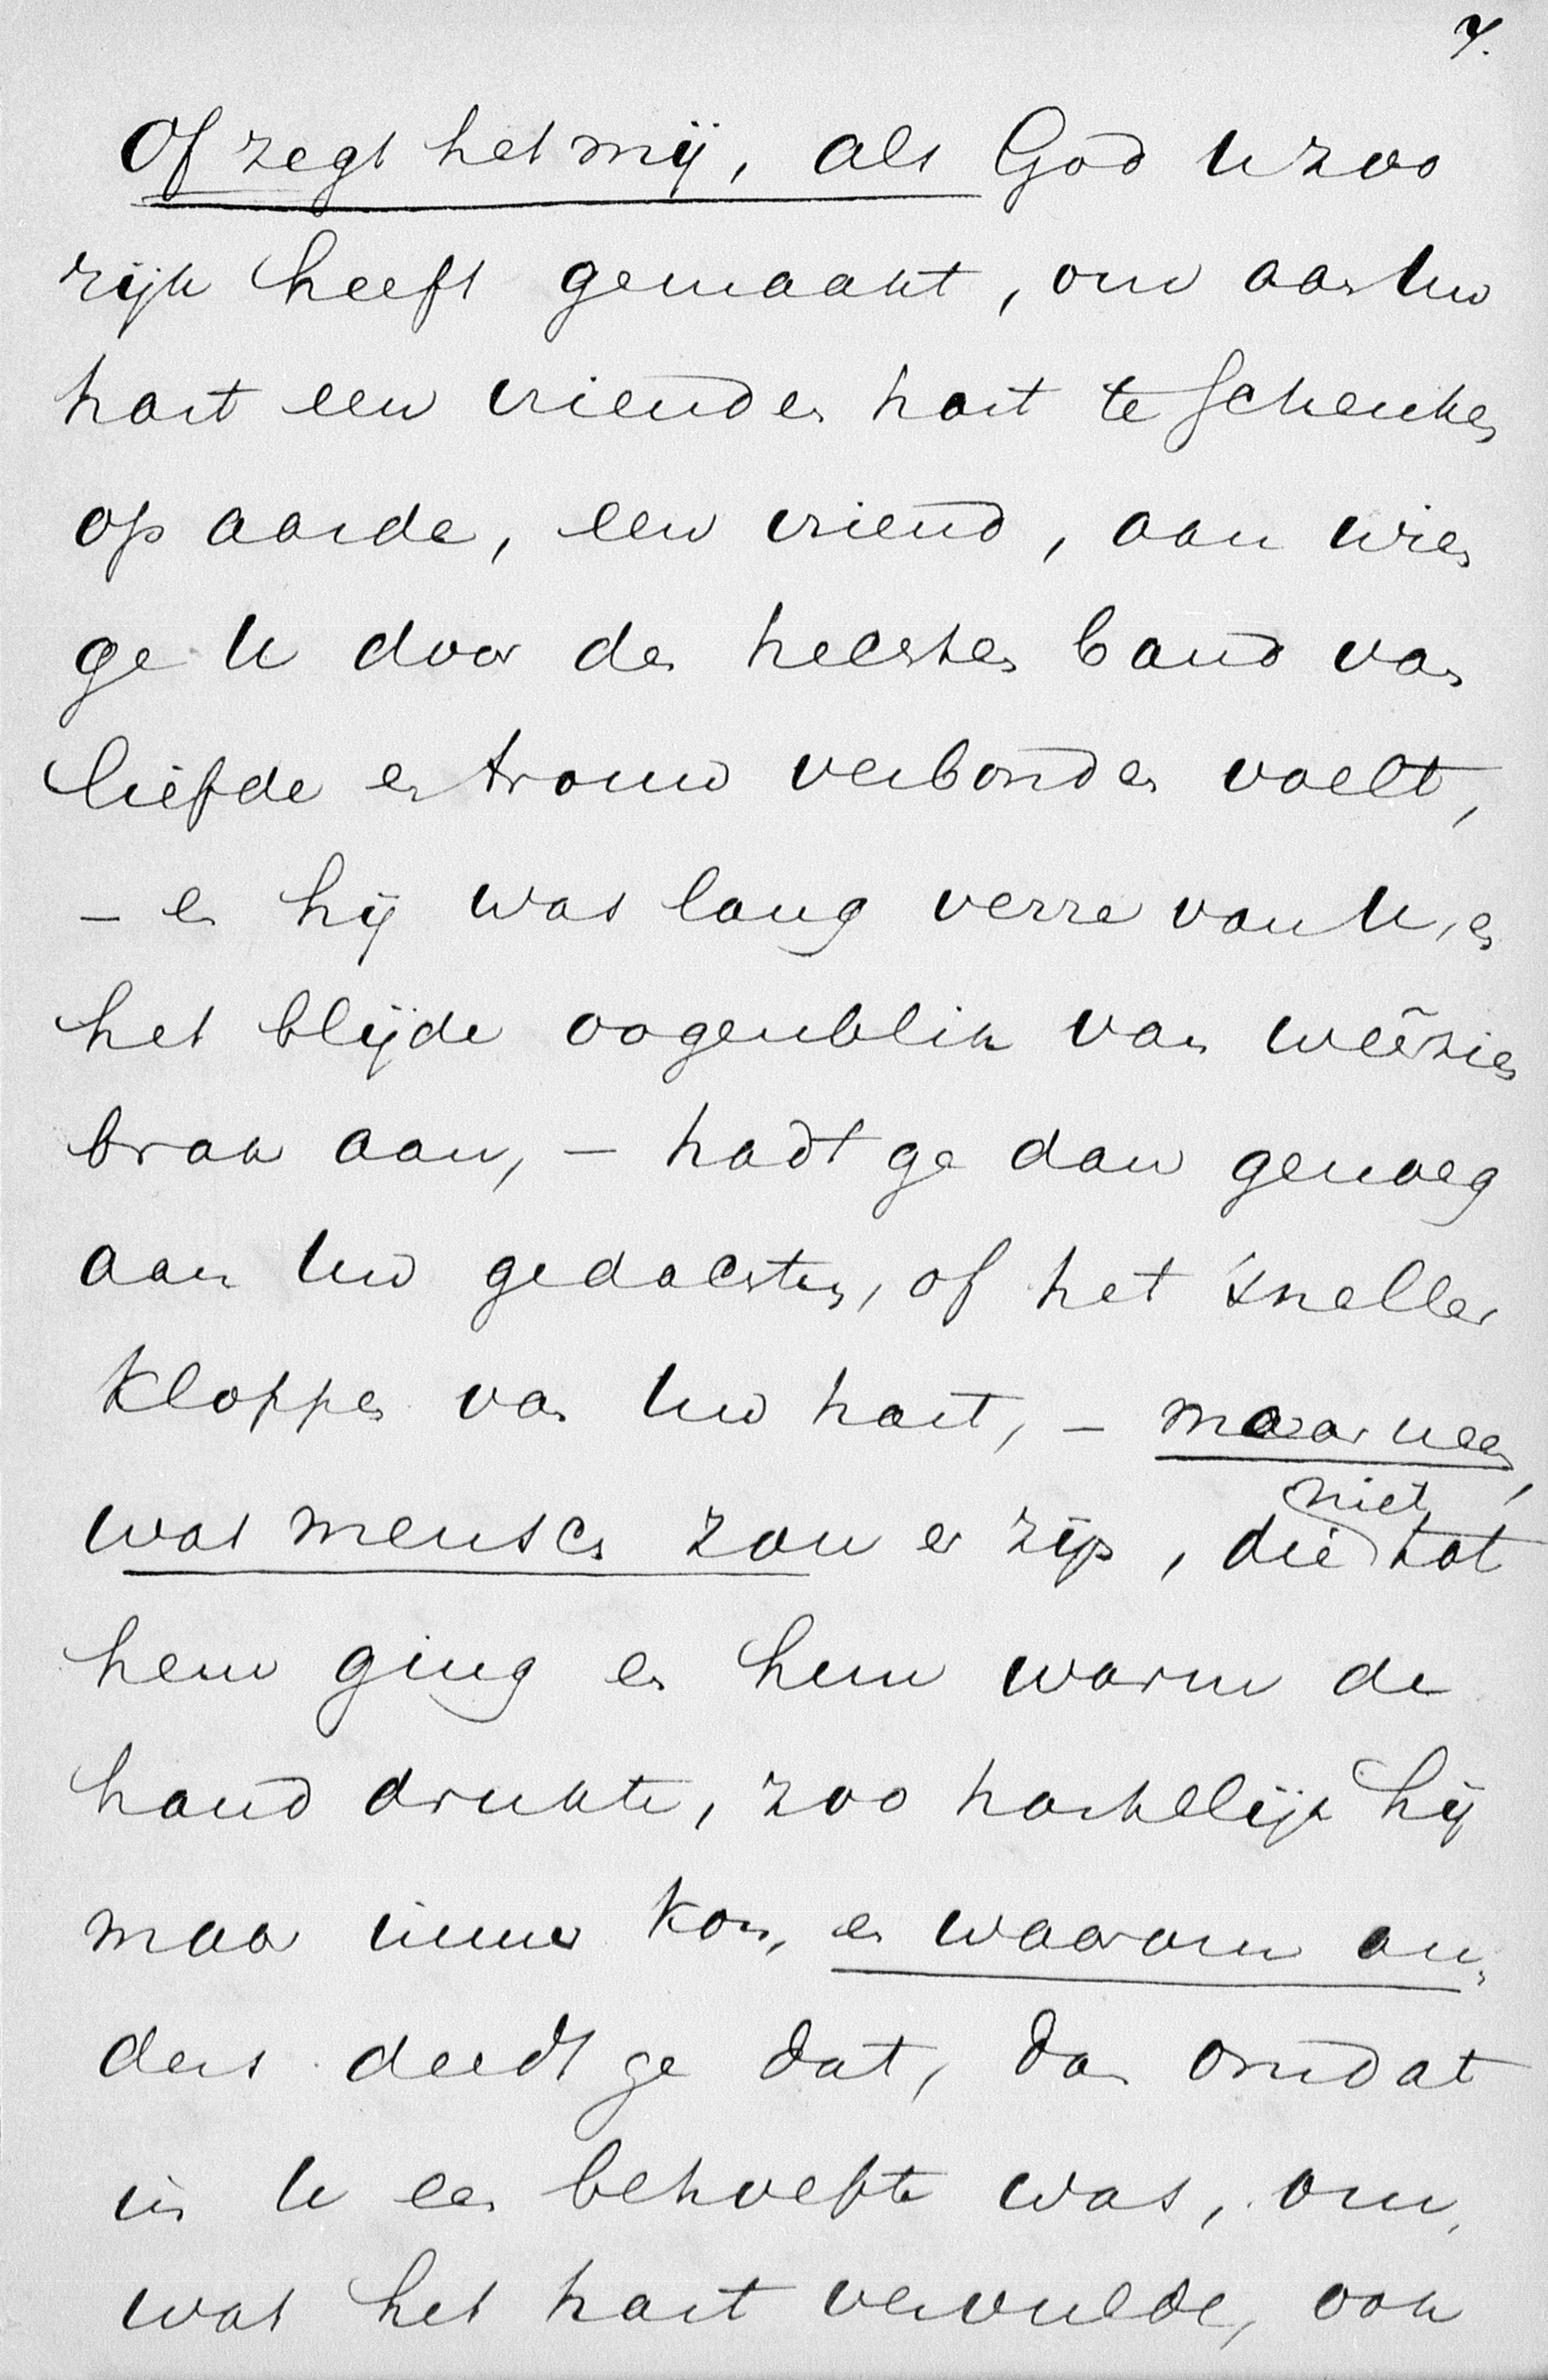 7.
Of zegt het mij, als God U zoo
rijk heeft gemaakt, om aan Uw
hart een vrienden hart te schenken
op aarde, een vriend, aan wien
ge U door den hechten band van
liefde en trouw verbonden voelt,
– en hij was lang verre van U, en
het blijde oogenblik van weêrzien
brak aan, – hadt ge dan genoeg
aan Uw gedachten, of het sneller
kloppen van Uw hart, – maar neen,
niet
wat mensch zou er zijn, die tot
hem ging en hem warm de
hand drukte, zoo hartelijk hij
maar immer kon, en waarom an„
ders deedt ge dat, dan omdat
in U een behoefte was, om,
wat het hart vervulde, ook